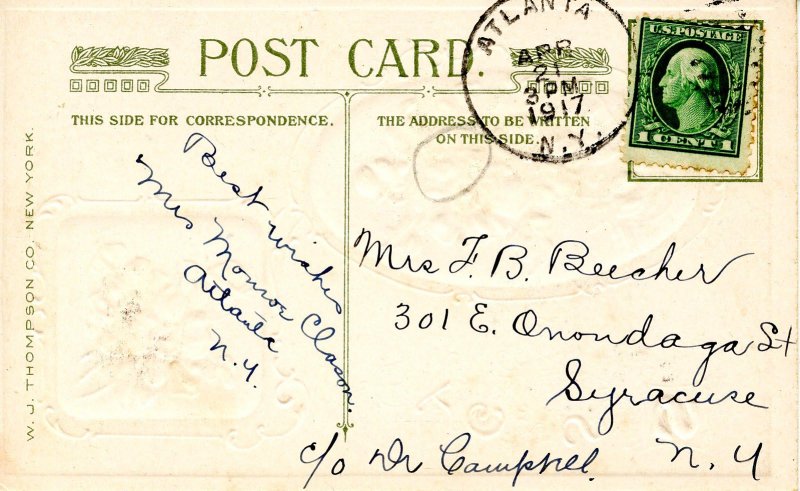 POST CARD.
THIS SIDE FOR CORRESPONDENCE.
THE ADDRESS TO BE WRITTEN
ON THIS SIDE.
ATLANTA
APR
21
3 PM
1917
N.Y.
U.S. POSTAGE
1 CENT 1
W. J. THOMPSON CO. NEW YORK.
Best wishes
Mrs Monroe Clason.
Atlanta
N.Y.
Mrs F. B. Beecher
301 E. Onondaga St
Syracuse
N. Y
c/o Dr Campbell.